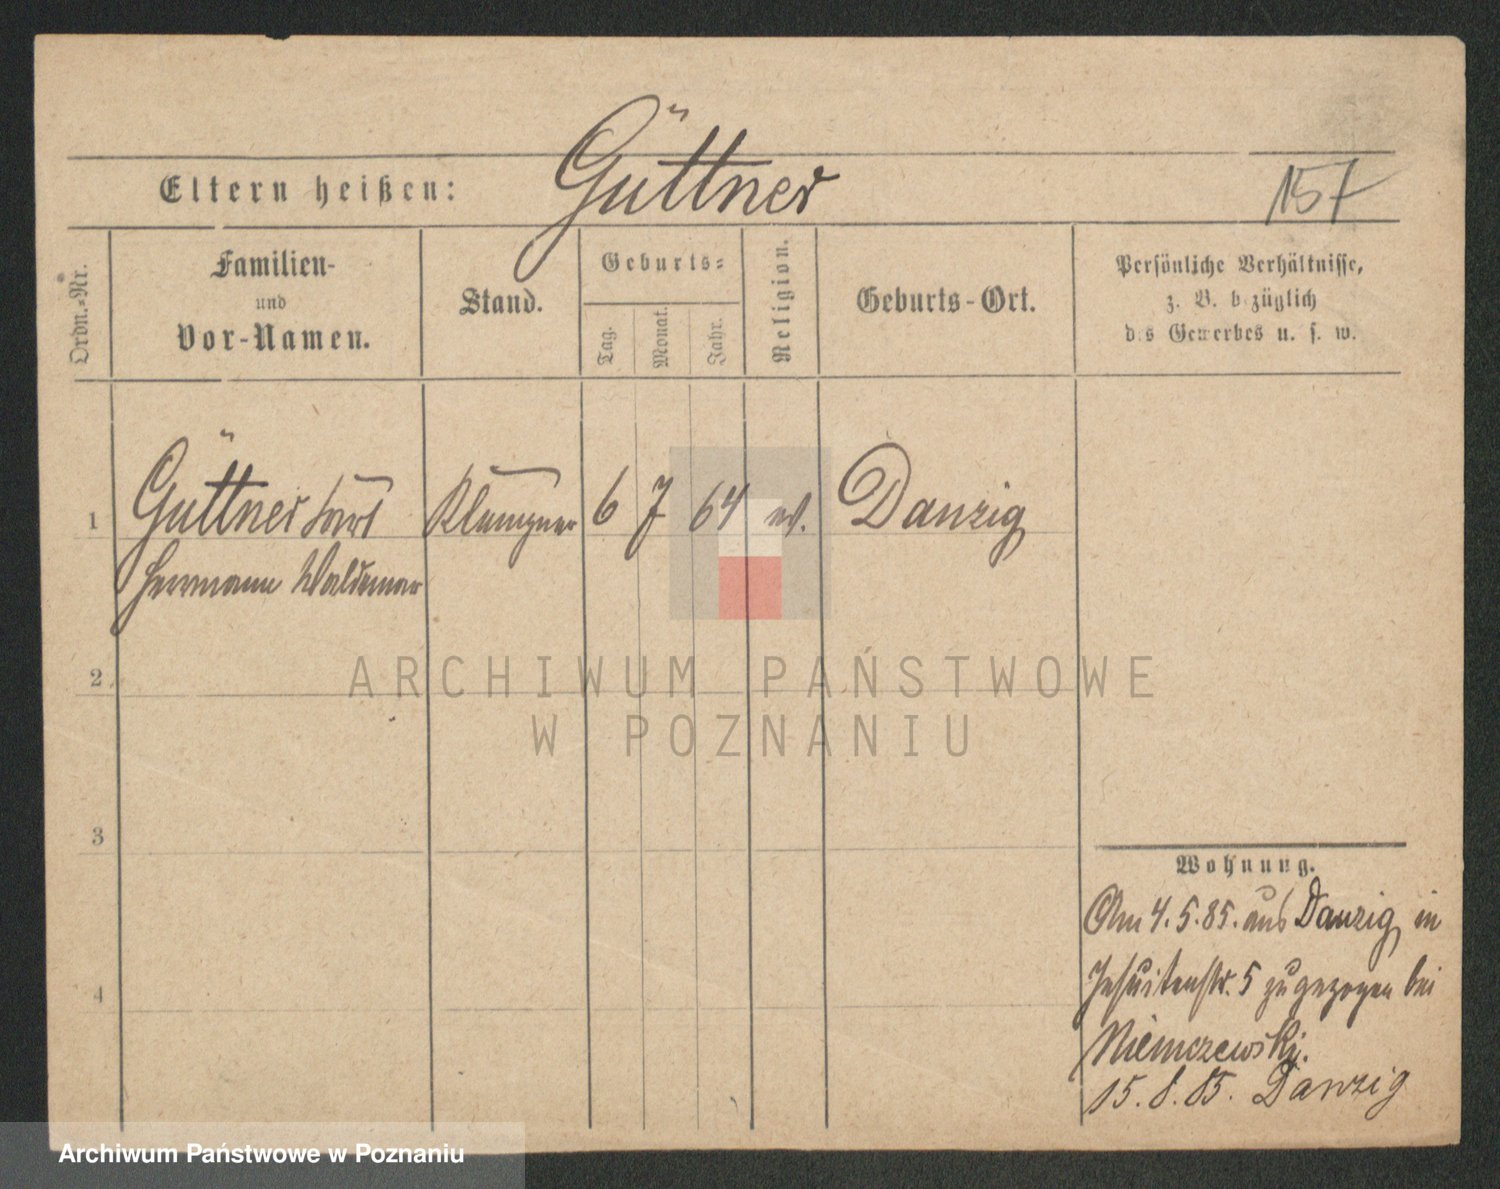 Güttner
Eltern heißen:
157
Ordn.-Nr.
Familien-
und
Vor-Namen.
Stand.
Geburts-
Tag.
Monat.
Jahr.
Religion.
Geburts-Ort.
Persönliche Verhältnisse,
z. B. bezüglich
des Gewerbes u. s. w.
1 Güttner Carl Klempner 6 7 64 ev. Danzig
Herrmann Waldemar
2
3
4
Wohnung.
Am 4.5.85. aus Danzig in
Jesuitenstr. 5 zugezogen bei
Niemczewski.
15.8.85. Danzig
ARCHIWUM PAŃSTWOWE
W POZNANIU
Archiwum Państwowe w Poznaniu